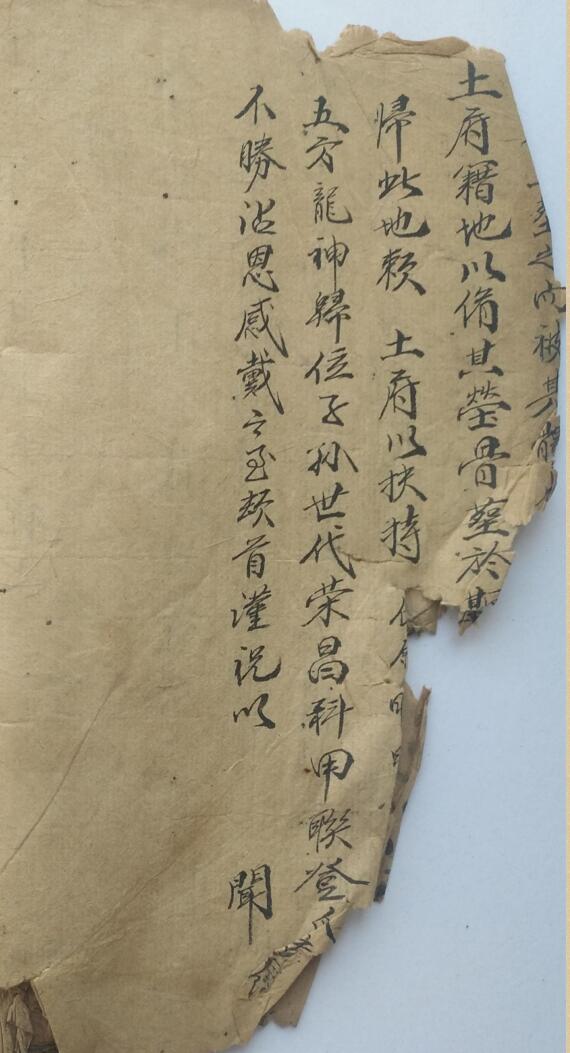 之內被其
土府籍地以備其塋骨塟於
歸此地賴 土府以扶持
五方龍神歸位子孙世代荣昌科甲聮登
不勝沾恩感戴之至頓首謹祝以 聞